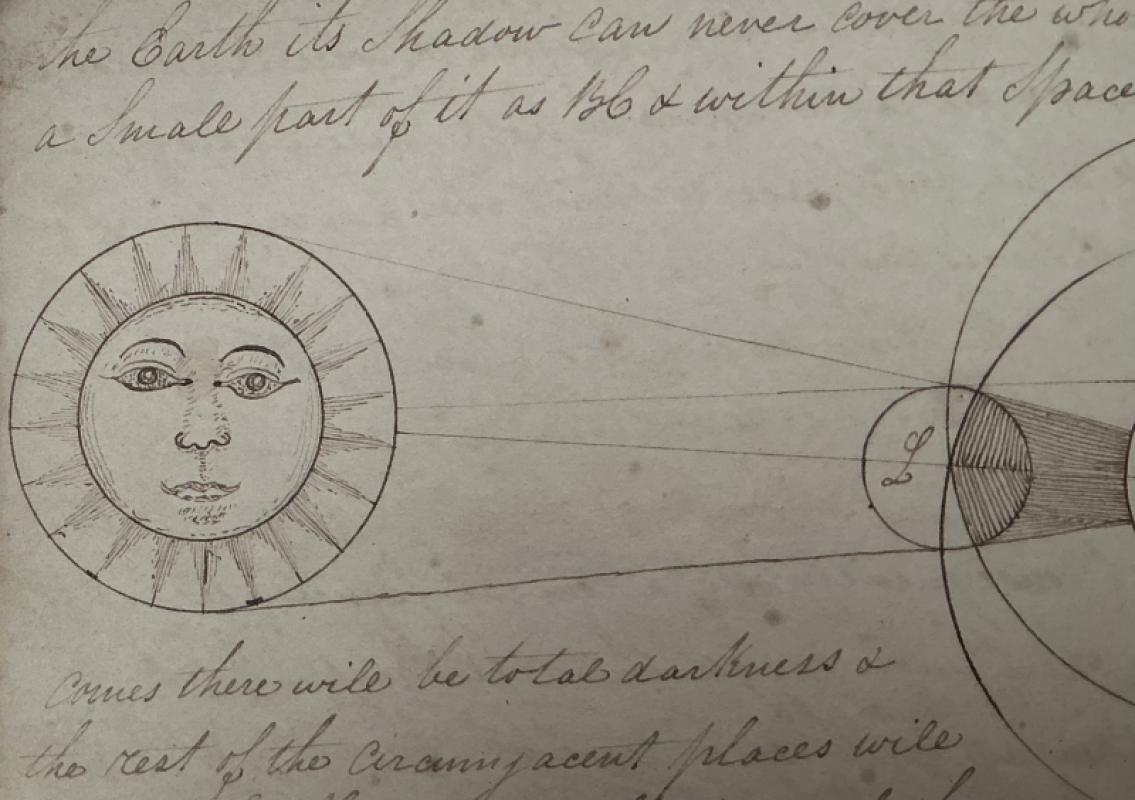 the Earth its Shadow can never cover the who
a Small part of it as BC & within that Space
L
comes there will be total darkness &
the rest of the circumjacent places will